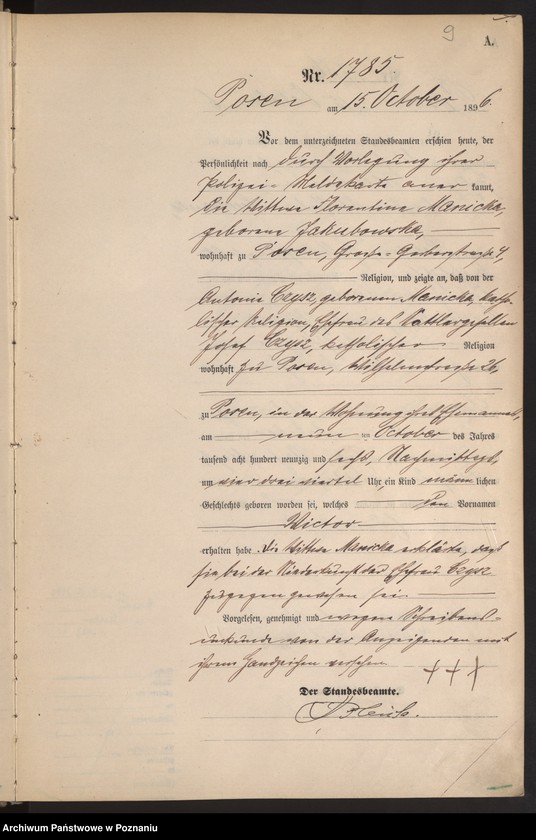 9
A.
Nr. 1785
Posen am 15. October 1896.
Vor dem unterzeichneten Standesbeamten erschien heute, der
Persönlichkeit nach durch Vorlegung ihrer
Polizei-Meldekarte aner kannt,
die Wittwe Florentine Manicka,
geborene Jakubowska,
wohnhaft zu Posen, Große-Gerberstraße 4,
Religion, und zeigte an, daß von der
Antonie Czysz, geborenen Manicka, katho-
lischer Religion, Ehefrau des Sattlergesellen
Josef Czysz, katholischer Religion
wohnhaft zu Posen, Wilhelmstraße 26,
zu Posen, in der Wohnung ihres Ehemannes,
am neun ten October des Jahres
tausend acht hundert neunzig und sechs, Nachmittags,
um vier drei viertel Uhr, ein Kind männ lichen
Geschlechts geboren worden sei, welches den Vornamen
Victor
erhalten habe. Die Wittwe Manicka erklärte, daß
sie bei der Niederkunft der Ehefrau Czysz
zugegen gewesen sei.
Vorgelesen, genehmigt und wegen Schreibens-
unkunde von der Anzeigenden mit
ihrem Handzeichen versehen
+++
Der Standesbeamte.
Archiwum Państwowe w Poznaniu